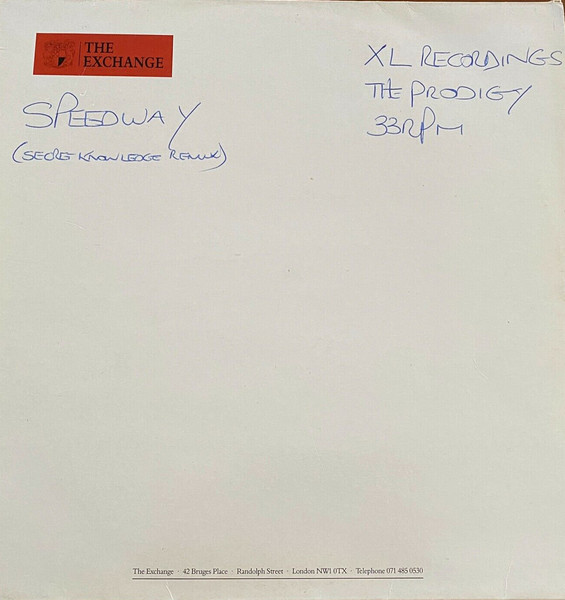 THE
EXCHANGE
XL RECORDINGS
THE PRODIGY
33RPM
SPEEDWAY
(SECRET KNOWLEDGE REMIX)
The Exchange · 42 Bruges Place · Randolph Street · London NW1 0TX · Telephone 071 485 0530